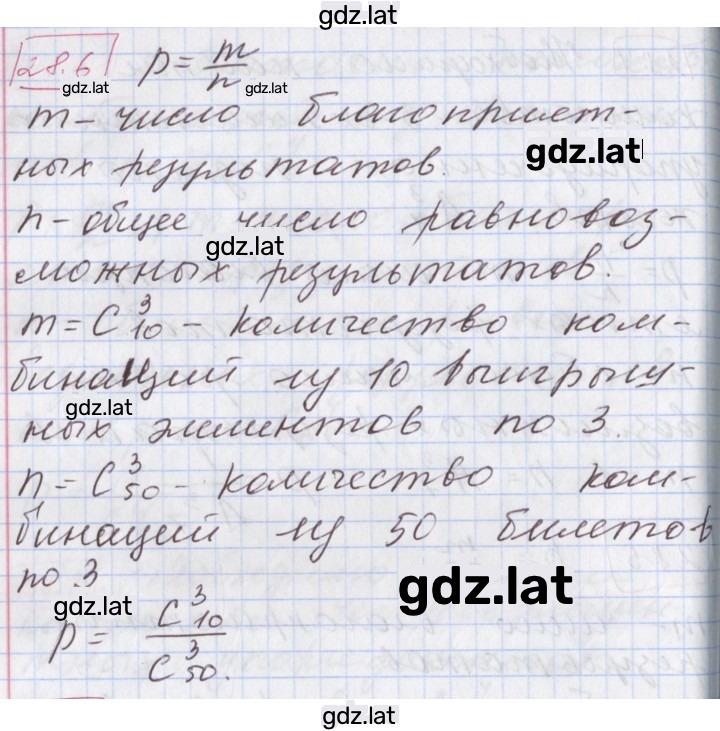 gdz.lat
28.6 p = m/n
gdz.lat gdz.lat
m - число благоприят-
gdz.lat
ных результатов.
n - общее число равновоз-
gdz.lat
можных результатов.
m = C³₁₀ - количество ком-
бинаций из 10 выигрыш-
gdz.lat
ных элементов по 3.
n = C³₅₀ - количество ком-
бинаций из 50 билетов
по 3
gdz.lat gdz.lat
p = C³₁₀ / C³₅₀.
gdz.lat